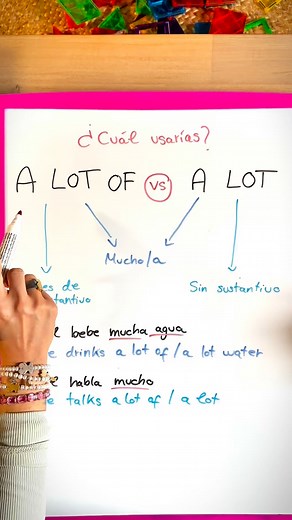 ¿Cuál usarías?
A LOT OF vs A LOT
Mucho/a
de
Sin sustantivo
bebe mucha agua
drinks a lot of / a lot water
habla mucho
talks a lot of / a lot